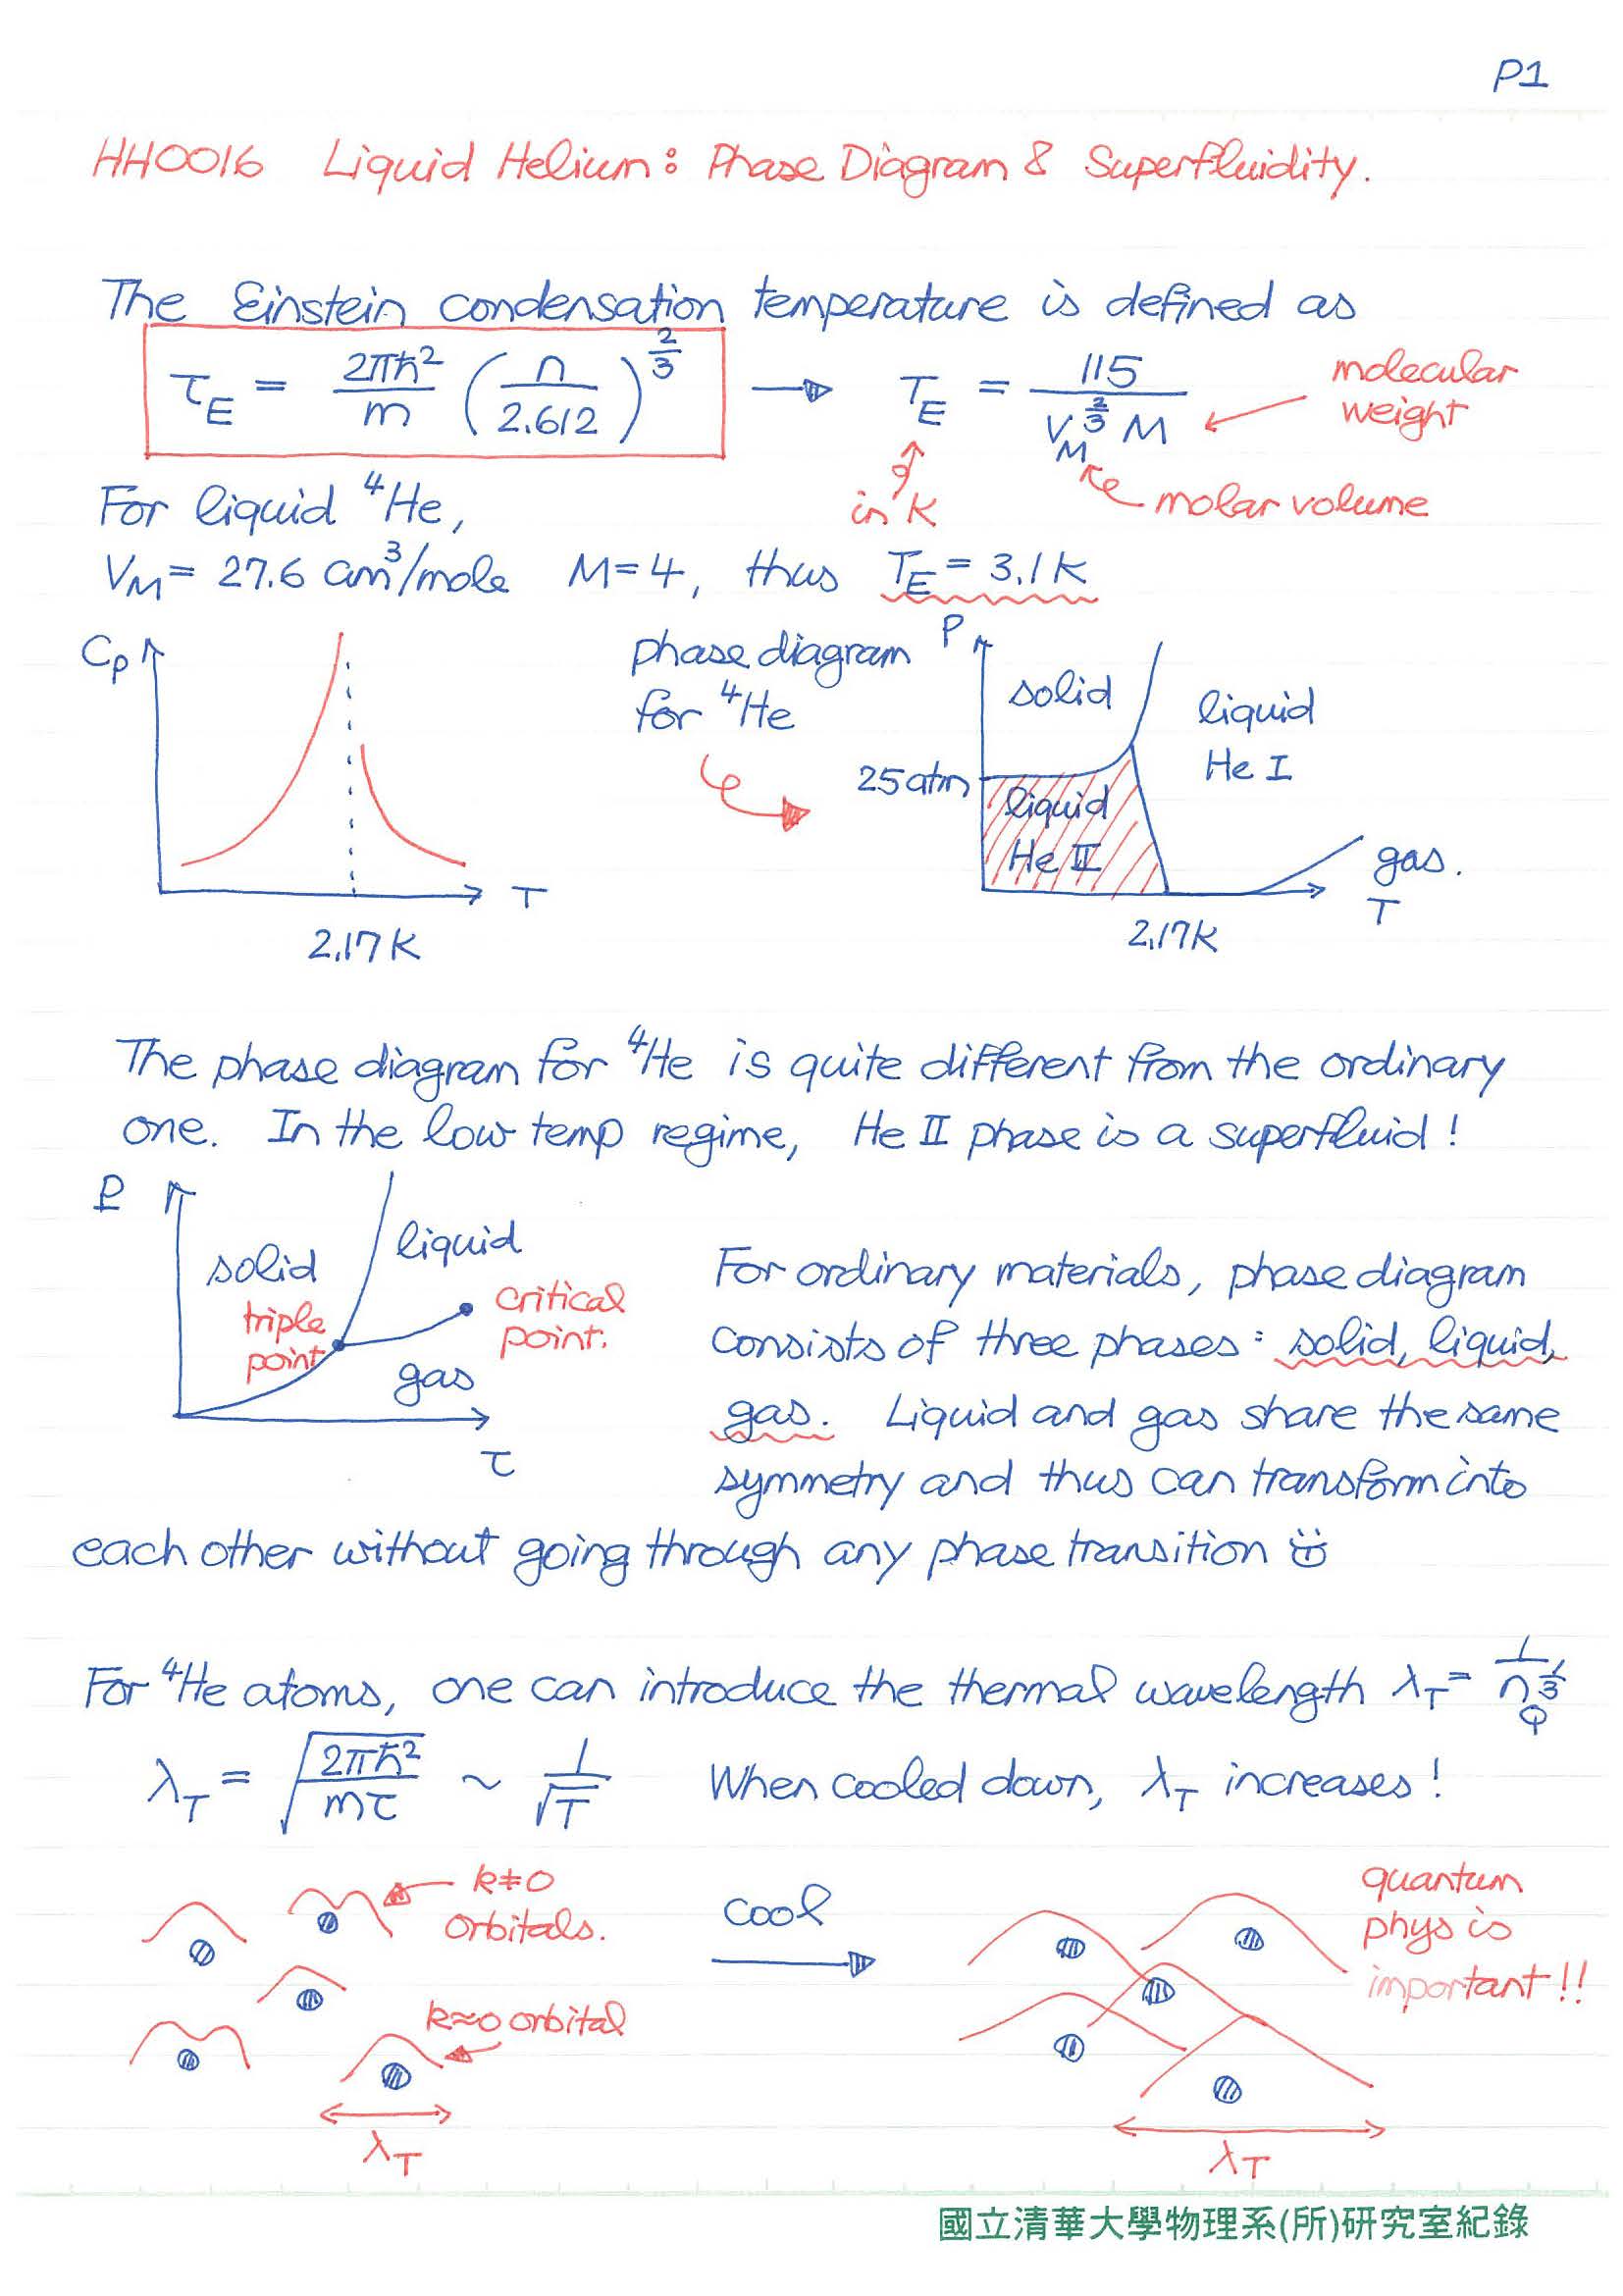 P1
HH0016 Liquid Helium: Phase Diagram & Superfluidity.
The Einstein condensation temperature is defined as
τ_E = 2πħ²/m (n/2.612)^(2/3) → T_E = 115/(V_M^(2/3) M)
molecular
weight
in K
molar volume
For liquid ⁴He,
V_M = 27.6 cm³/mole M=4, thus T_E = 3.1K
C_p
T
2.17K
phase diagram
for ⁴He
P
solid
liquid
He I
25atm
liquid
He II
gas.
T
2.17K
The phase diagram for ⁴He is quite different from the ordinary
one. In the low temp regime, He II phase is a superfluid!
P
solid
liquid
triple
point
critical
point.
gas
τ
For ordinary materials, phase diagram
consists of three phases: solid, liquid,
gas. Liquid and gas share the same
symmetry and thus can transform into
each other without going through any phase transition
For ⁴He atoms, one can introduce the thermal wavelength λ_T = 1/n_Q^(1/3)
λ_T = √(2πħ²/mτ) ~ 1/√T When cooled down, λ_T increases!
k≠0
orbitals.
k≈0 orbital
λ_T
cool
quantum
phys is
important!!
λ_T
國立清華大學物理系(所)研究室紀錄